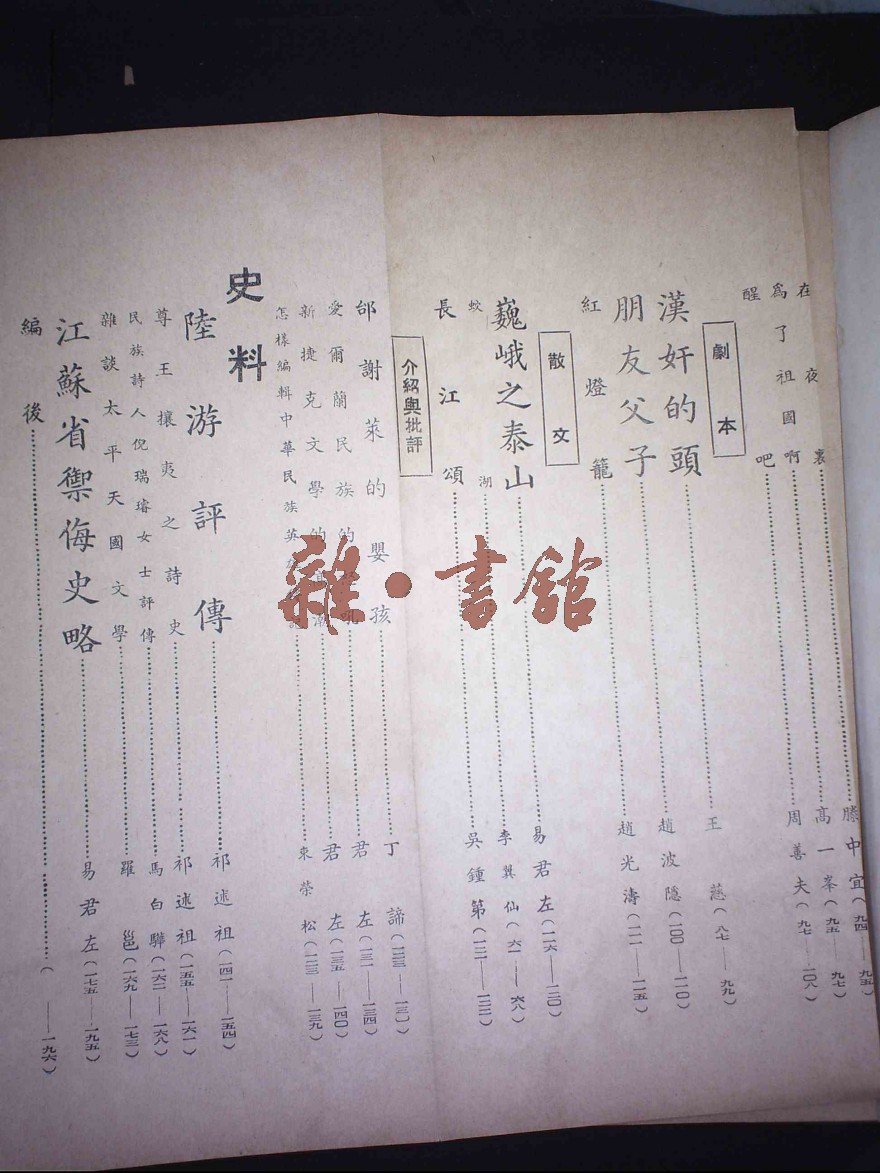 在夜裏……滕中宜(九四——九五)
為了祖國啊……高一峯(九五——九七)
醒吧……周善夫(九七——一〇八)
劇本
漢奸的頭……王慈(八七——九九)
朋友父子……趙波隱(一〇〇——一一〇)
紅燈籠……趙光濤(一一一——一一五)
散文
巍峨之泰山……易君左(一一六——一二〇)
蛟湖……李翼仙(六一——六八)
長江頌……吳鍾第(一二一——一二二)
介紹與批評
邰謝萊的嬰孩……丁諦(一二三——一三〇)
愛爾蘭民族的……君左(一三一——一三四)
新捷克文學的……君左(一三五——一四〇)
怎樣編輯中華民族英……束榮松(一二三——一三九)
史料
陸游評傳……祁述祖(一四一——一五四)
尊王攘夷之詩史……祁述祖(一五五——一六一)
民族詩人倪瑞璿女士評傳……馬白驊(一六二——一六八)
雜談太平天國文學……羅邕(一六九——一七三)
江蘇省禦侮史略……易君左(一七五——一九五)
編後……(——一九六)
雜·書館